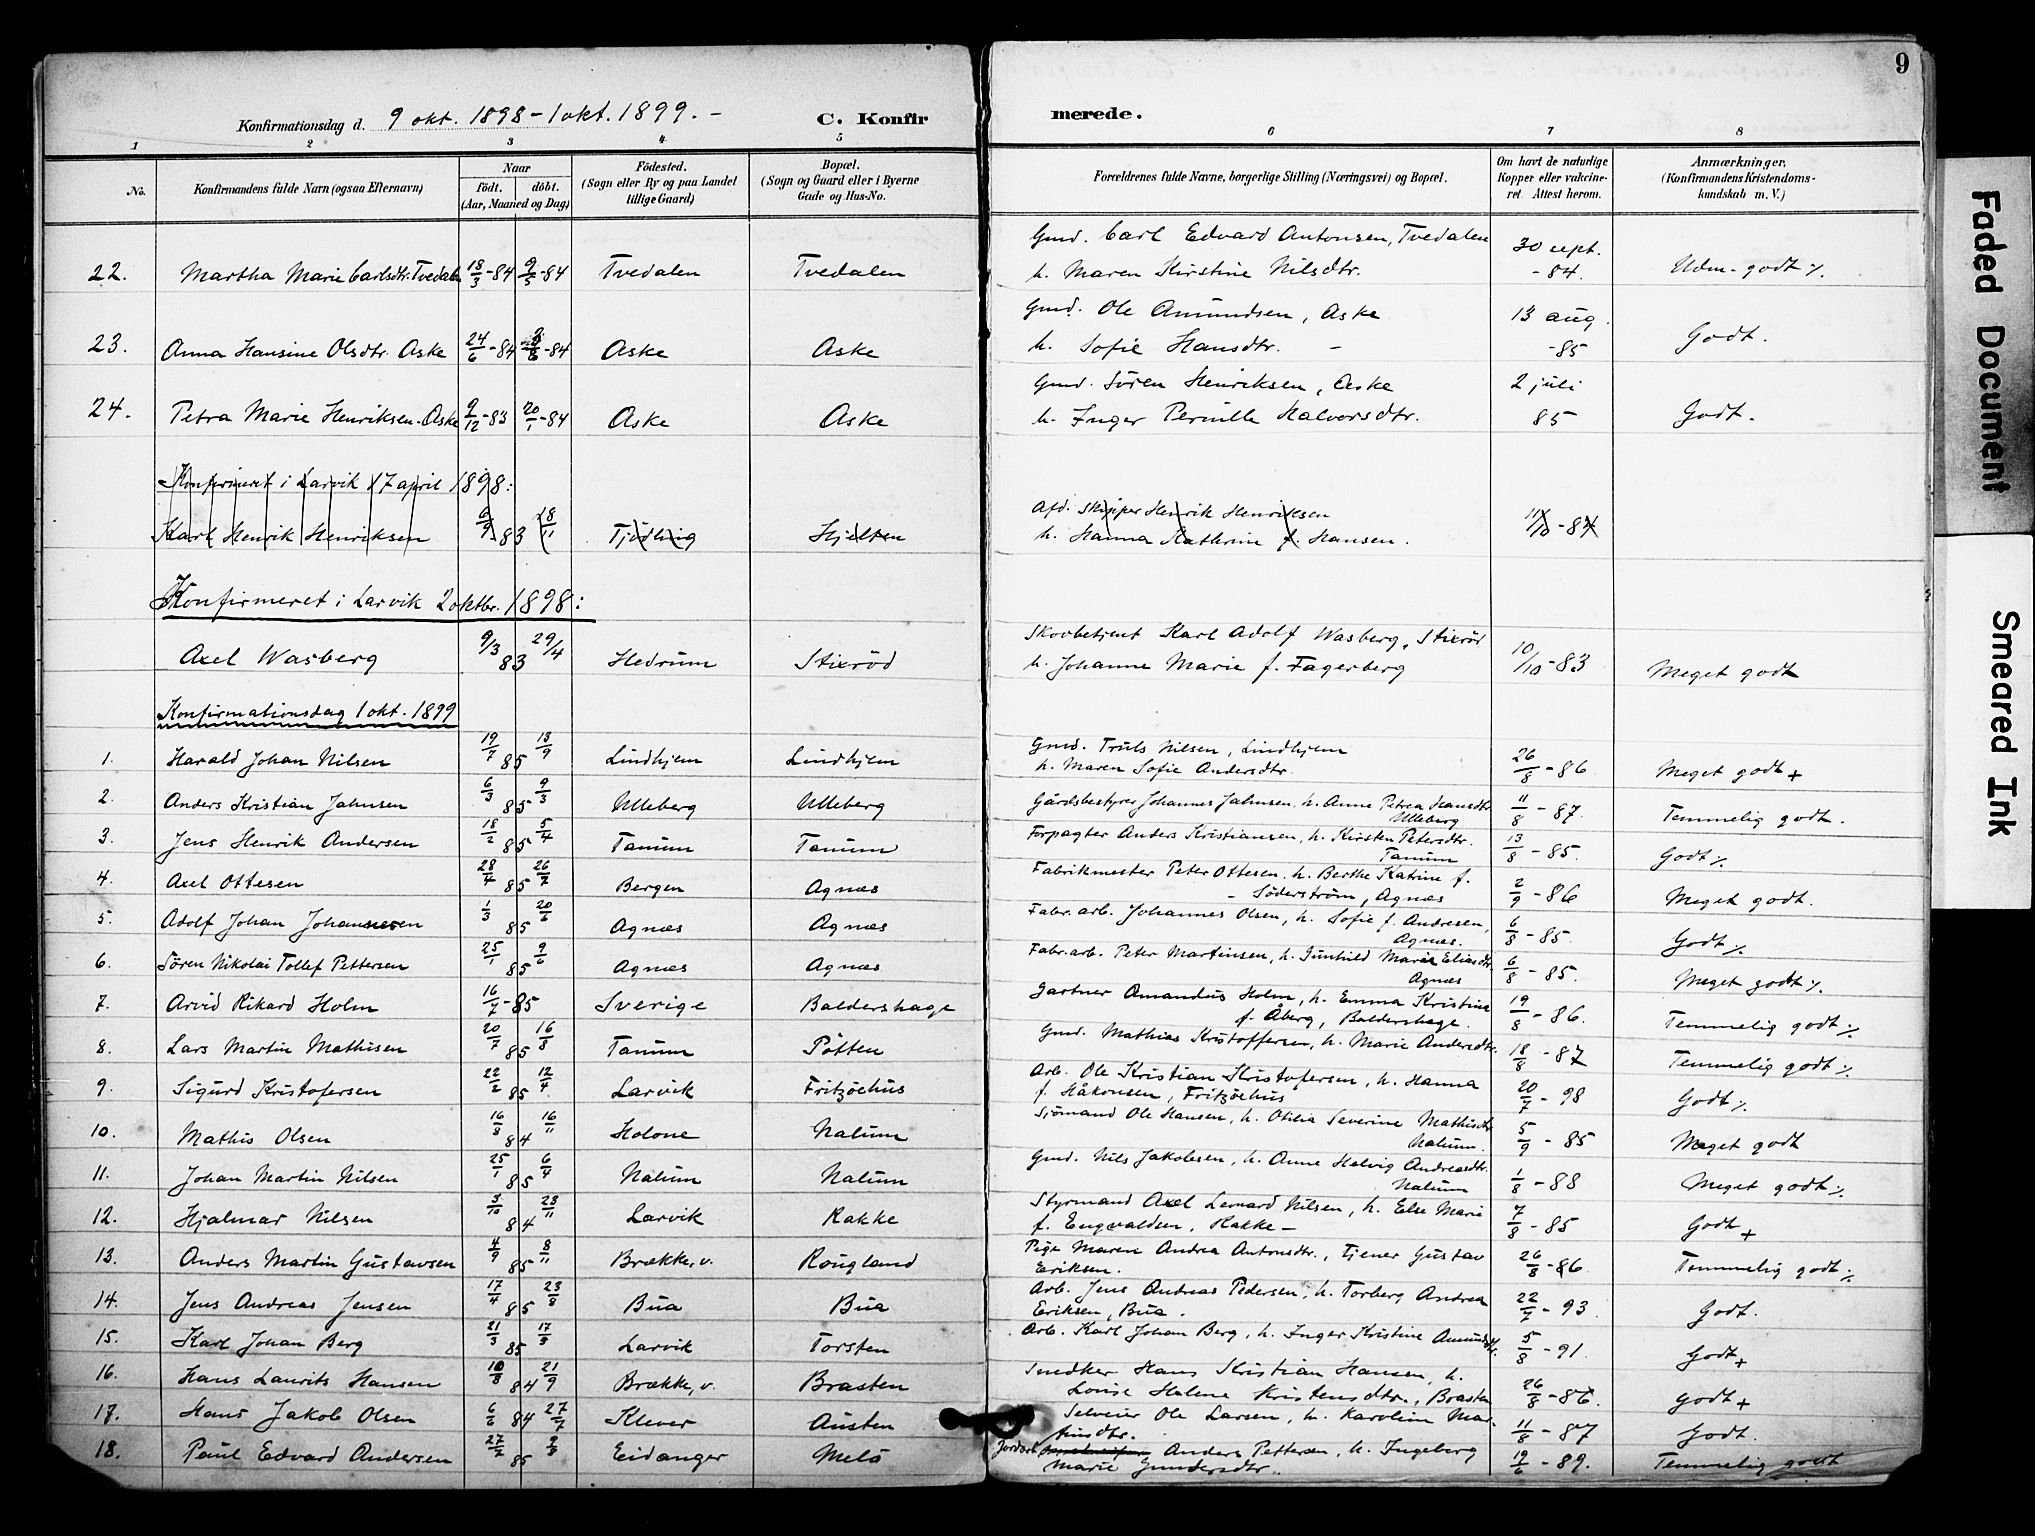 9
Konfirmationsdag d. 9 okt. 1898 - 1 okt. 1899. -
C. Konfirmerede.
1 2 3 4 5 6 7 8
No.
Konfirmandens fulde Navn (ogsaa Efternavn)
Naar
födt. döbt.
(Aar, Maaned og Dag)
Födested.
(Sogn eller By og paa Landet
tillige Gaard)
Bopæl.
(Sogn og Gaard eller i Byerne
Gade og Hus-No.
Forældrenes fulde Navne, borgerlige Stilling (Næringsvei) og Bopæl.
Om havt de naturlige
Kopper eller vakcine-
ret. Attest herom.
Anmærkninger.
(Konfirmandens Kristendoms-
kundskab m. V.)
Gmd. Carl Edvard Antonsen, Tvedalen 30 sept.
22. Martha Marie Carlsdtr. Tvedalen 18/3-84 9/5-84 Tvedalen Tvedalen h. Maren Kirstine Nilsdtr. -84. Udm. godt %
Gmd. Ole Amundsen, Aske 13 aug.
23. Anna Hansine Olsdtr. Aske 24/6-84 -84 Aske Aske h. Sofie Hansdtr. - -85 Godt.
Gmd. Sören Henriksen, Aske 2 juli
24. Petra Marie Henriksen. Aske 9/12-83 20/1-84 Aske Aske h. Inger Pernille Halvorsdtr. 85 Godt.
Konfirmeret i Larvik 17 april 1898:
Afd. Skipper Henrik Henriksen
Karl Henrik Henriksen 6/9 83 18/11 Tjödling Hjelten h. Hanna Kathrine f. Hansen. 11/10-84
Konfirmeret i Larvik 2 oktbr. 1898:
Skovbetjent Karl Adolf Wasberg, Stixröd
Axel Wasberg 9/3 83 29/4 Hedrum Stixröd h. Johanne Marie f. Fagerberg 10/10-83 Meget godt
Konfirmationsdag 1 okt. 1899
1. Harald Johan Nilsen 19/7 85 13/9 Lindhjem Lindhjem Gmd. Truls Nilsen, Lindhjem 26/8-86 Meget godt +
h. Maren Sofie Andersdtr.
2. Anders Kristian Jahnsen 6/3 85 9/3 Ulleberg Ulleberg Gårdsbestyrer Johannes Jahnsen h. Anne Petrea Hansdtr. 11/8-87. Temmelig godt.
Ulleberg
3. Jens Henrik Andersen 18/2 85 5/4 Tanum Tanum Forpagter Anders Kristiansen, h. Kirsten Petersdtr. 13/8-85. Godt %
Tanum
4. Axel Ottesen 28/4 85 26/7 Bergen Agnæs Fabrikmester Peter Ottesen, h. Berthe Katrine f. 2/9-86 Meget godt.
- Söderström, Agnæs
5. Adolf Johan Johannesen 1/3 85 20/6 Agnæs Agnæs Fabr. arb. Johannes Olsen, h. Sofie f. Andresen, 6/8-85. Godt %
Agnæs.
6. Sören Nikolai Tollef Pettersen 25/1 85 9/6 Agnæs Agnæs Fabr. arb. Peter Martinsen, h. Gunhild Marie Eliasdtr. 6/8-85. Meget godt %
Agnæs
7. Arvid Rikard Holm 16/7-85 Sverige Baldershage Gartner Amandus Holm, h. Emma Kristina 19/8-86. Temmelig godt %
f. Åberg, Baldershage.
8. Lars Martin Mathisen 20/7 85 16/8 Tanum Pötten Gmd. Mathias Kristoffersen, h. Marie Andersdtr. 18/8-87 Temmelig godt %
9. Sigurd Kristofersen 22/2 85 12/4 Larvik Fritzöehus Arb. Ole Kristian Kristofersen, h. Hanna 20/7-98 Godt %
f. Håkonsen, Fritzöehus
10. Mathis Olsen 16/8 84 16/11 Holone Nalum Sjömand Ole Hansen, h. Otilia Severine Mathisdtr 5/9-85 Meget godt
Nalum.
11. Johan Martin Nilsen 25/1 85 6/4 Nalum Nalum Gmd. Nils Jakobsen, h. Anne Helvig Andreasdtr. 1/8-88 Meget godt %
Nalum
12. Hjalmar Nilsen 3/10 84 23/11 Larvik Rakke Styrmand Axel Leonard Nilsen, h. Else Marie 7/8-85 Godt +
f. Engvaldsen, Rakke -
13. Anders Martin Gustavsen 4/9 85 8/11 Brække, v. Rougland Pige Maren Andrea Antonsdtr., tjener Gustav 26/8-86 Temmelig godt %
Eriksen.
14. Jens Andreas Jensen 17/4 85 23/8 Bua Bua Arb. Jens Andreas Pedersen, h. Torberg Andrea 22/7-93. Godt.
Eriksen, Bua.
15. Karl Johan Berg 21/3 85 17/5 Larvik Torsten Arb. Karl Johan Berg, h. Inger Kristine Amundsdtr. 5/8-91. Godt +
16. Hans Laurits Hansen 10/8 84 21/9 Brække, v. Brasten Snedker Hans Kristian Hansen, h. 26/8-86. godt +
Louise Helene Kristensdtr., Brasten
17. Hans Jakob Olsen 6/6 84 27/7 Klever Austen Selveier Ole Larsen, h. Karoline Mar- 11/8-87 Godt.
tinsdtr.
18. Paul Edvard Andersen 27/2 85 Eidanger Melö Jordarb. Anders Pettersen, h. Ingeborg 19/6-89. Temmelig godt
Marie Gundersdtr.
Faded Document
Smeared Ink